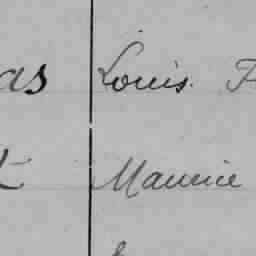 as Louis. F
t Maurice